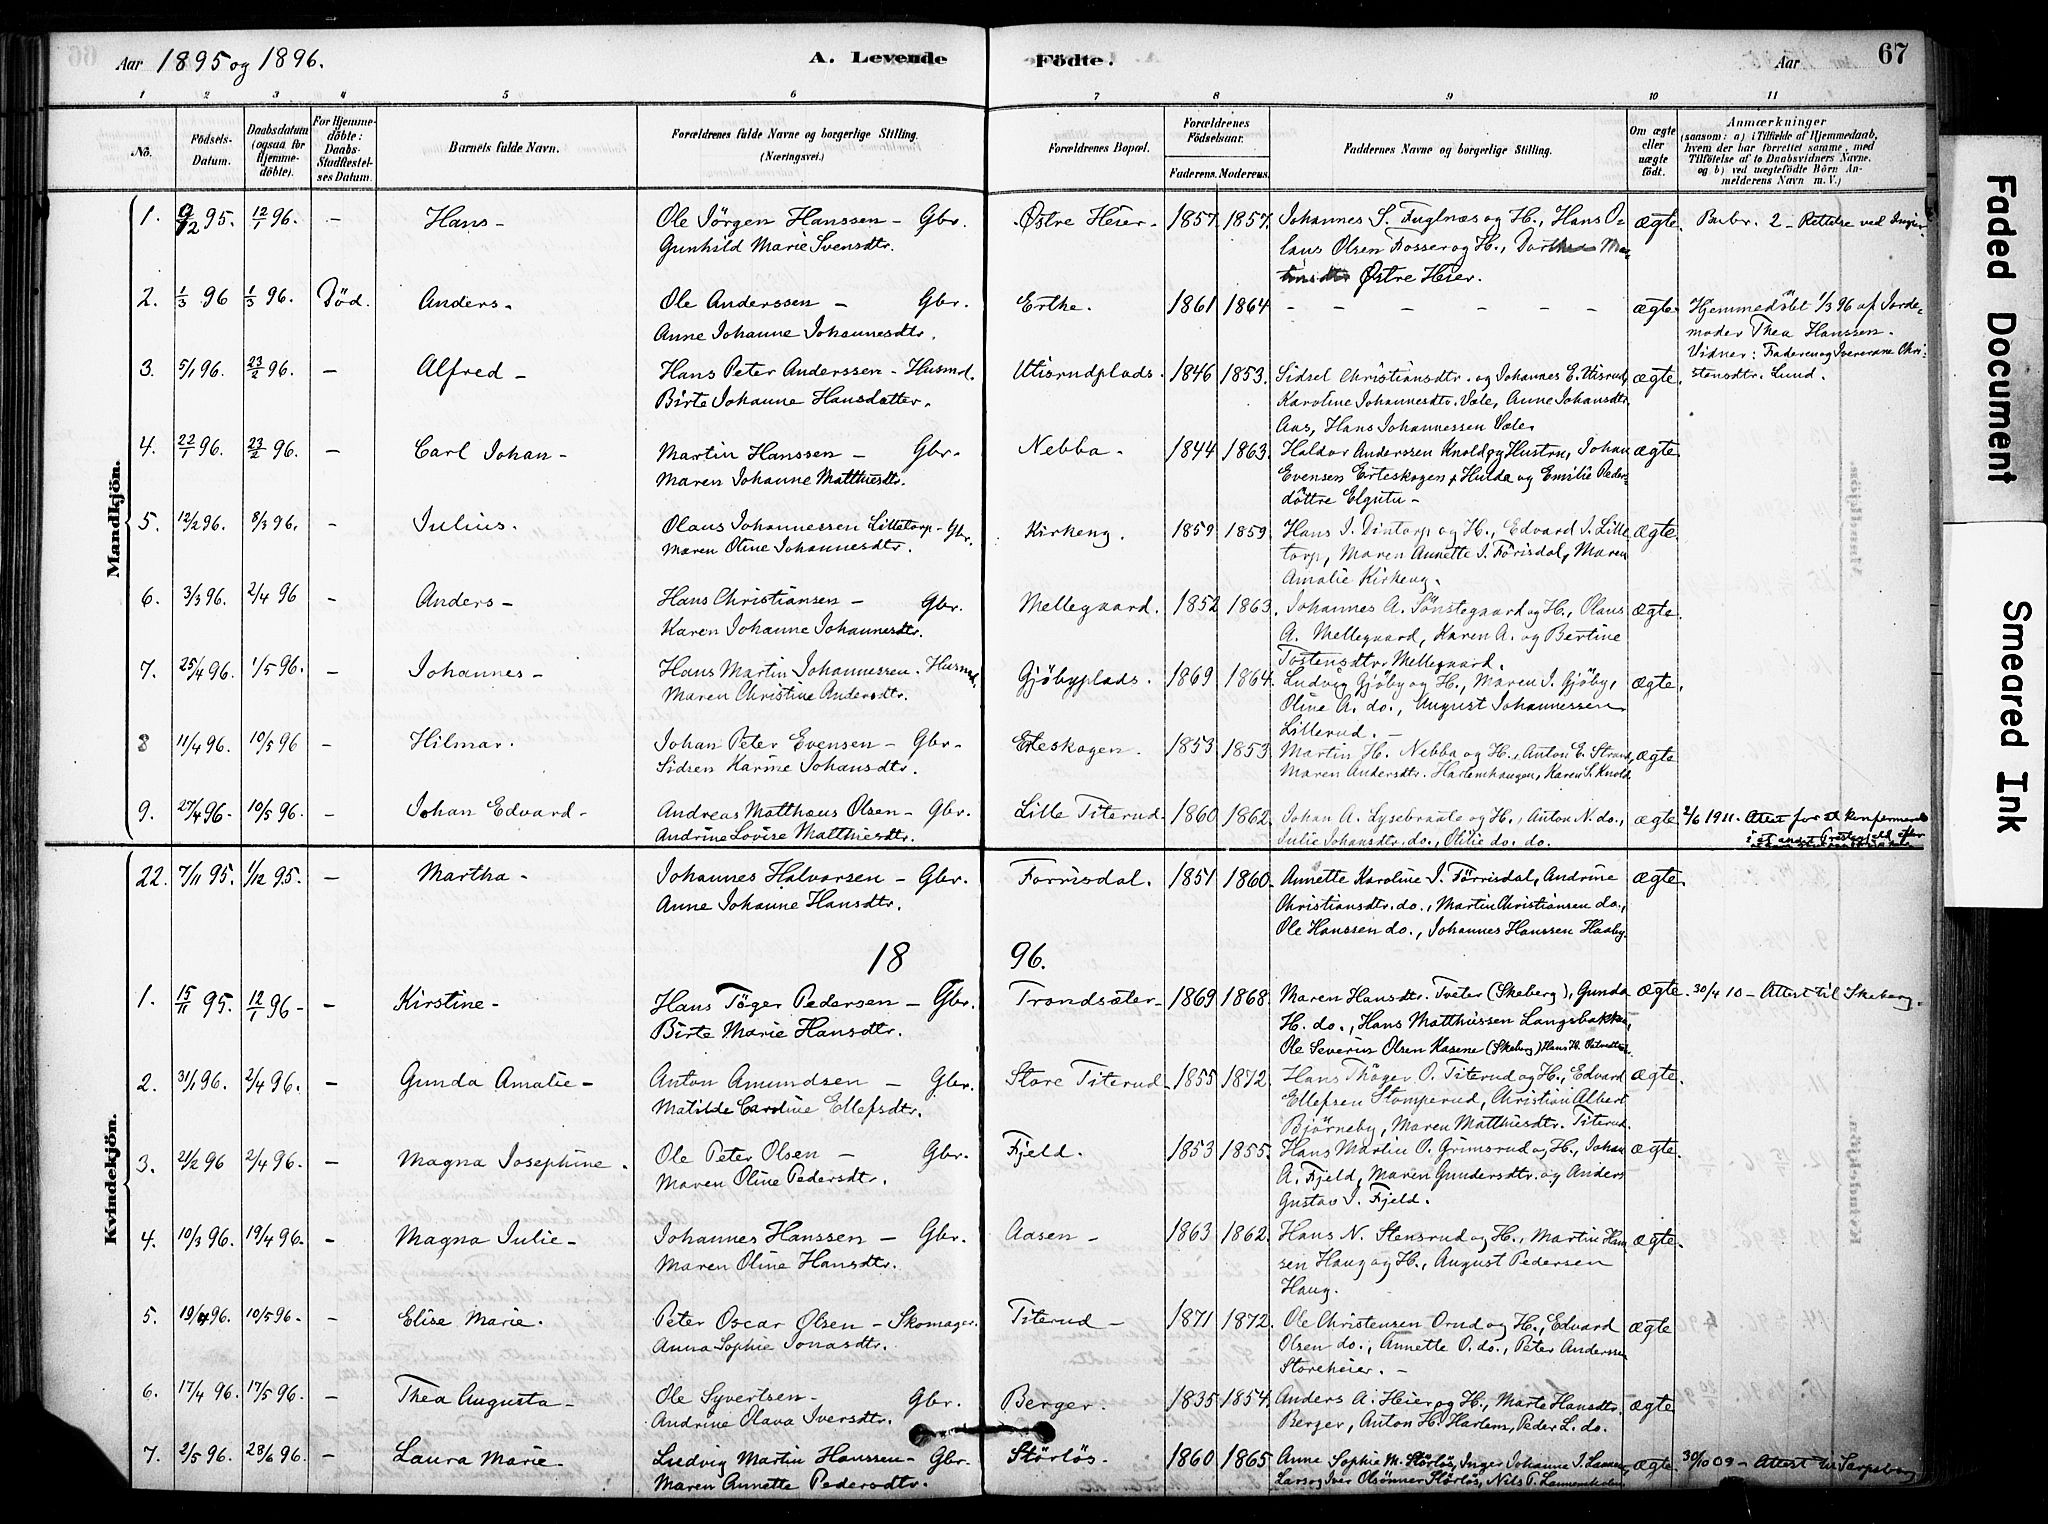 Aar 1895 og 1896. A. Levende Födte. Aar 67
1 2 3 4 5 6 7 8 9 10 11
No. Födsels-Datum. Daabsdatum (ogsaa for Hjemme-döbte). For Hjemme-döbte: Daabs-Stadfæstel-ses Datum. Barnets fulde Navn. Forældrenes fulde Navne og borgerlige Stilling. (Næringsvei.) Forældrenes Bopæl. Forældrenes Födselsaar. Faderens. Moderens. Faddernes Navne og borgerlige Stilling. Om ægte eller uægte födt. Anmærkninger (saasom: a) i Tilfælde af Hjemmedaab, hvem der har forrettet samme, med Tilföielse af to Daabsvidners Navne, og b) ved uægtefödte Börn An-melderens Navn m. V.)
Mandkjön.
1. 9/12 95. 12/1 96. – Hans – Ole Jörgen Hanssen – Gbr. Østre Heier – 1857. 1857. Johannes S. Fuglnæs og H., Hans O- ægte. 2 – Rettelse ved
Gunhild Marie Svensdtr. laus Olsen Fosser og H.,
Østre Heier.
2. 1/3 96 1/3 96. Död. Anders – Ole Anderssen – Gbr. Erthe. 1861 1864 – – – – – – ægte Hjemmedöbt 1/3 96 af Jorde-
Anne Johanne Johannesdtr. moder Thea Hanssen.
Vidner: Faderen og Chri-
3. 5/1 96. 23/2 96. – Alfred – Hans Peter Anderssen – Husmd. Utisrudplads. 1846 1853. Sidsel Christiansdtr. og Johannes E. Utisrud, ægte. stensdtr. Lund.
Birte Johanne Hansdatter. Karoline Johannesdtr. Væle, Anne Johansdtr.
Aas, Hans Johannessen Væle.
4. 22/1 96. 23/2 96. – Carl Johan – Martin Hanssen – Gbr. Nebba – 1844 1863. Haldor Anderssen Knold og Hustru, Johan ægte.
Maren Johanne Matthisdtr. Evensen Erteskogen, Hulda og Emilie Peder-
döttre Elgutu –
5. 12/2 96. 8/3 96. – Julius. Olaus Johannessen Lilletorp – Gbr. Kirkeng. 1859 1859. Hans J. Dintorp og H., Edvard J. Lille ægte.
Maren Oline Johannesdtr. torp, Maren Annette J. Förisdal, Maren
Amalie Kirkeng.
6. 3/3 96. 2/4 96 – Anders – Hans Christiansen – Gbr. Mellegaard. 1852 1863. Johannes A. Sönstegaard og H., Olaus ægte.
Karen Johanne Johannesdtr. A. Mellegaard, Karen A. og Bertine
Tostensdtr. Mellegaard.
7. 25/4 96. 1/5 96. – Johannes – Hans Martin Johannessen. Husmd. Gjöbyplads. 1869 1864. Ludvig Gjöby og H., Maren J. Gjöby, ægte.
Maren Christine Andersdtr. Oline A. do., August Johannessen
Lillerud. –
8 11/4 96. 10/5 96 – Hilmar. Johan Peter Evensen – Gbr. Erteskogen. 1853 1853. Martin H. Nebba og H., Anton E. Strand, ægte
Sidsen Karine Johansdtr. Maren Andersdtr. Harlemhaugen, Karen S. Knold
9. 27/4 96. 10/5 96. – Johan Edvard – Andreas Matthæus Olsen – Gbr. Lille Titerud. 1860 1862. Johan A. Lysebraate og H., Anton N. do., ægte 2/6 1911. Attest for at konfirmeres
Andrine Lovise Matthisdtr. Julie Johansdtr. do., Otilie do. do. i et andet Præstegjeld
Kvindekjön.
22. 7/11 95. 1/12 95. – Martha – Johannes Halvorsen – Gbr. Forrisdal. 1851 1860. Annette Karoline J. Förrisdal, Andrine ægte.
Anne Johanne Hansdtr. Christiansdtr. do., Martin Christiansen do.,
Ole Hanssen do., Johannes Hanssen Haaby.
18 96.
1. 15/11 95. 12/1 96 – – Kirstine – Hans Töger Pedersen – Gbr. Trondsæter – 1869 1868. Maren Hansdtr. Tveter (Skeberg), Gunda ægte. 30/4 10 – Attest til Skeberg.
Birte Marie Hansdtr. H. do., Hans Matthissen Langsbakke,
Ole Severin Olsen Kasene (Skeberg)
2. 31/1 96. 2/4 96. – Gunda Amalie – Anton Amundsen – Gbr. Store Titerud 1855 1872. Hans Thöger O. Titerud og H., Edvard ægte.
Matilde Caroline Ellefsdtr. Ellefsen Stomperud, Christian Albert
Björneby, Maren Matthisdtr. Titerud.
3. 21/2 96 2/4 96. – Magna Josephine. Ole Peter Olsen – Gbr. Fjeld. 1853 1855. Hans Martin O. Grimsrud og H., Johan ægte.
Maren Oline Pedersdtr. A. Fjeld, Maren Gundersdtr. og Anders
Gustav J. Fjeld.
4. 10/3 96. 19/4 96. – Magna Julie – Johannes Hanssen – Gbr. Aasen – 1863 1862. Hans N. Stensrud og H., Martin Hans ægte.
Maren Oline Hansdtr. sen Haug og H., August Pedersen
Haug.
5. 19/4 96. 10/5 96. – Elise Marie. Peter Oscar Olsen – Skomager. Titerud – 1871 1872. Ole Christensen Orud og H., Edvard ægte
Anna Sophie Jonasdtr. Olsen do., Annette O. do., Peter Anderssen
Storeheier. –
6. 17/4 96. 17/5 96. – Thea Augusta – Ole Syvertsen – Gbr. Berger. 1835 1854. Anders A. Heier og H., Marte Hansdtr. ægte
Andrine Olava Iversdtr. Berger, Anton H. Harlem, Peder L. do.
7. 2/5 96. 28/6 96. – Laura Marie – Ludvig Martin Hanssen – Gbr. Störlös. 1860 1865 Anne Sophie M. Störlös, Inger Johanne J. ægte 30/10 09 – Attest til Sarpsborg
Maren Annette Pedersdtr. Lars og Iver Olsönner Störlös, Nils P.
Faded Document
Smeared Ink